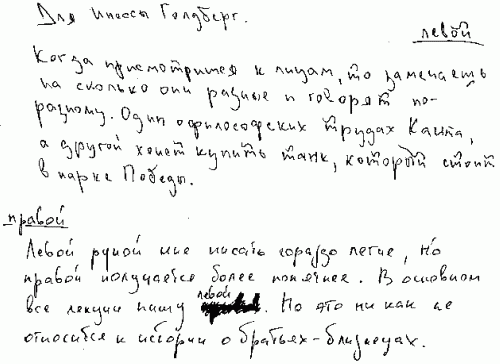 Для Инессы Голдберг.
левой
Когда присмотришся к лицам, то замечаешь
на сколько они разные и говорят по-
разному. Один о философских трудах Канта,
а другой хочет купить танк, который стоит
в парке Победы.
правой
Левой рукой мне писать гораздо легче, но
правой получается более понятнее. В основном
все лекции пишу левой. Но это ни как не
относится к истории о братьях-близнецах.